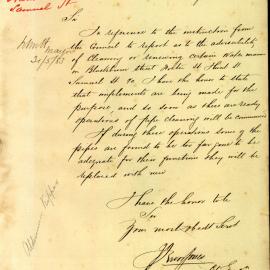 Samuel St.
Sir
In reference to the instruction from
the Council to report as to the advisability
of cleaning or renewing certain water mains
on Blackburn Street Water St Third St
Samuel St &c, I have the honor to state
that implements are being made for the
purpose, and so soon as they are ready
operations of pipe cleaning will be commenced
If during these operations some of the
pipes are found to be too far gone to be
adequate for their function they will be
replaced with new
I have the honor to be
Sir
Your most obedt Servt